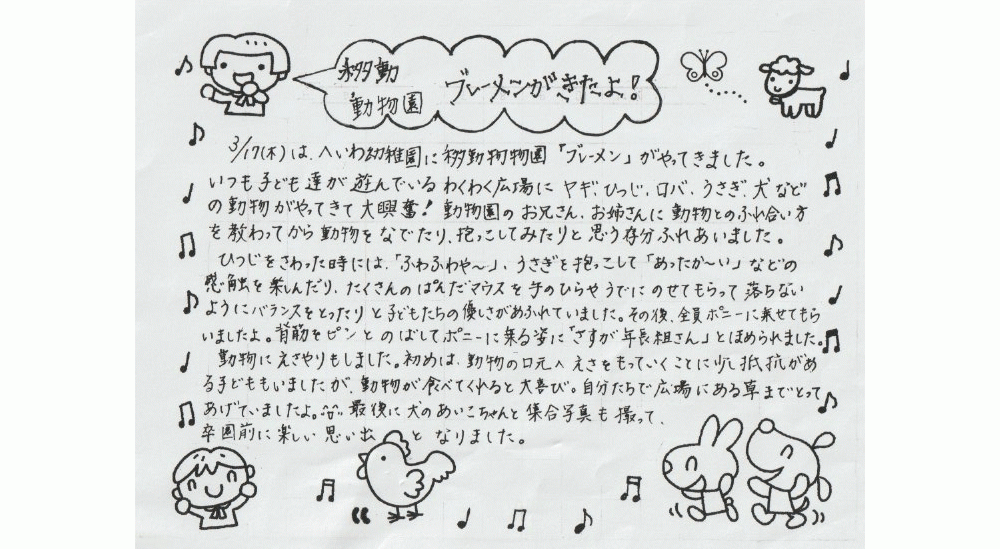 移動
動物園
ブレーメンがきたよ!
3/17(木)は、へいわ幼稚園に移動動物園「ブレーメン」がやってきました。
いつも子ども達が遊んでいるわくわく広場にヤギ、ひつじ、ロバ、うさぎ、犬など
の動物がやってきて大興奮!動物園のお兄さん、お姉さんに動物とのふれ合い方
を教わってから動物をなでたり、抱っこしてみたりと思う存分ふれあいました。
ひつじをさわった時には、「ふわふわや~」、うさぎを抱っこして「あったか~い」などの
感触を楽しんだり、たくさんのぱんだマウスを手のひらやうでにのせてもらって落ちない
ようにバランスをとったりと子どもたちの優しさがあふれていました。その後、全員ポニーに乗せてもら
いましたよ。背筋をピンとのばしてポニーに乗る姿に「さすが年長組さん」とほめられました。
動物にえさやりもしました。初めは、動物の口元へえさをもっていくことに少し抵抗があ
る子どももいましたが、動物が食べてくれると大喜び。自分たちで広場にある草までとって
あげていましたよ。最後に犬のあいこちゃんと集合写真も撮って、
卒園前に楽しい思い出となりました。